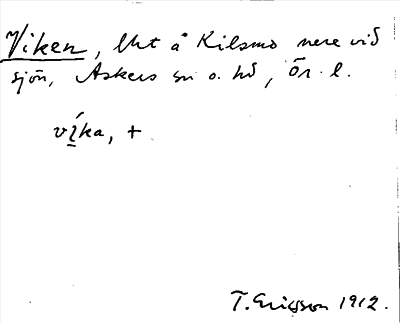 Viken, lht å Kilsmo nere vid
sjön, Askers sn o. hd, Ör. l.
ví̱ka, +
T. Ericsson 1912.